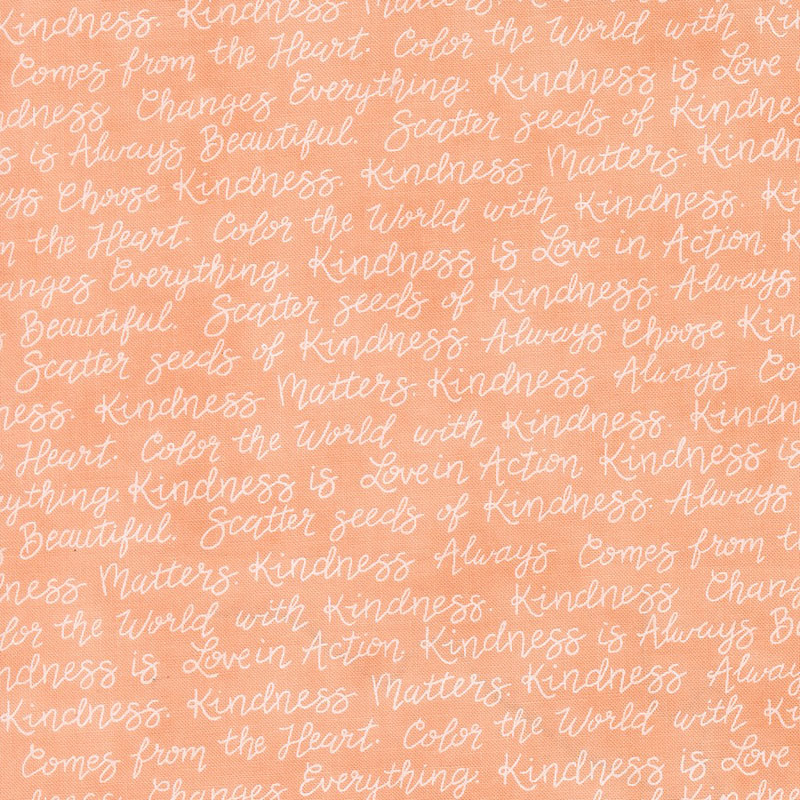 Kindness. Kindness Matters. Kindness
Comes from the Heart. Color the World with Ki
ndness Changes Everything. Kindness is Love
s is Always Beautiful. Scatter seeds of Kindness
ys Choose Kindness. Kindness Matters. Kindn
m the Heart. Color the World with Kindness. Ki
anges Everything. Kindness is Love in Action. K
Beautiful. Scatter seeds of Kindness. Always
Scatter seeds of Kindness. Always Choose Kin
ness. Kindness Matters. Kindness Always Co
Heart. Color the World with Kindness. Kindn
ything. Kindness is Love in Action. Kindness is
Beautiful. Scatter seeds of Kindness. Always
ness Matters. Kindness Always Comes from t
lor the World with Kindness. Kindness Chang
ndness is Love in Action. Kindness is Always B
Kindness. Kindness Matters. Kindness Alway
Comes from the Heart. Color the World with Ki
Changes Everything. Kindness is Love